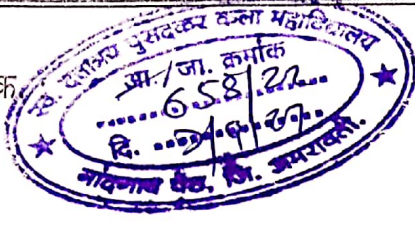 स्व. दत्तात्रय पुसदकर कला महाविद्यालय
आ./जा. क्रमांक
658/22
दि.
नांदगाव पेठ, जि. अमरावती.